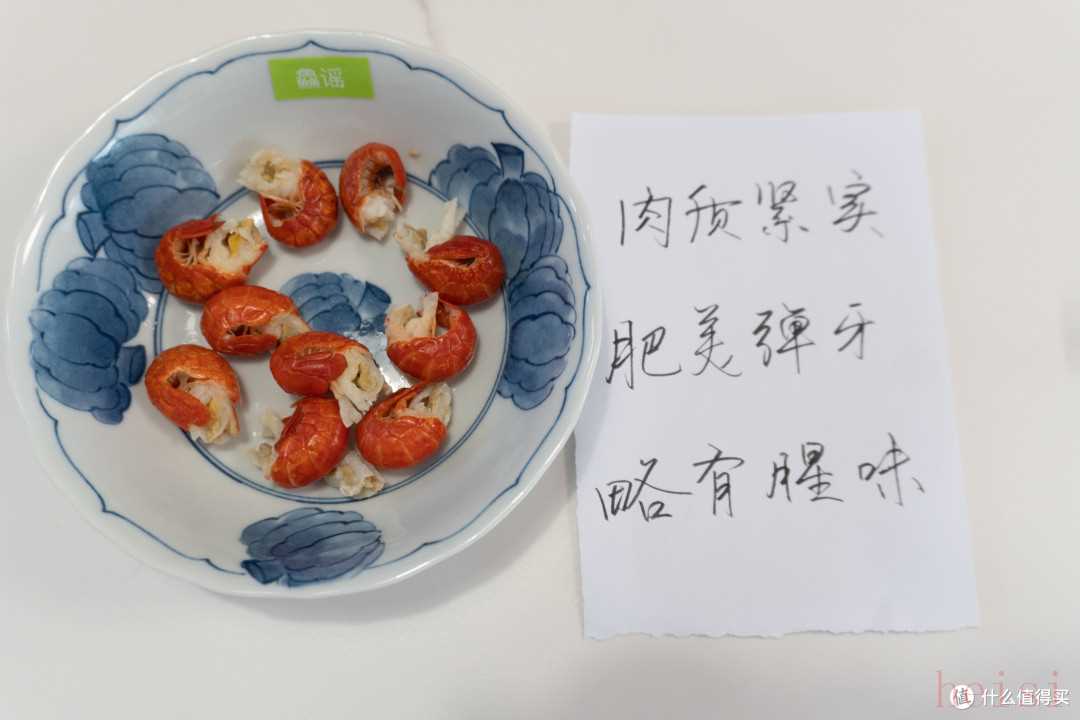 鱻谣
肉质紧实
肥美弹牙
略有腥味
值 什么值得买